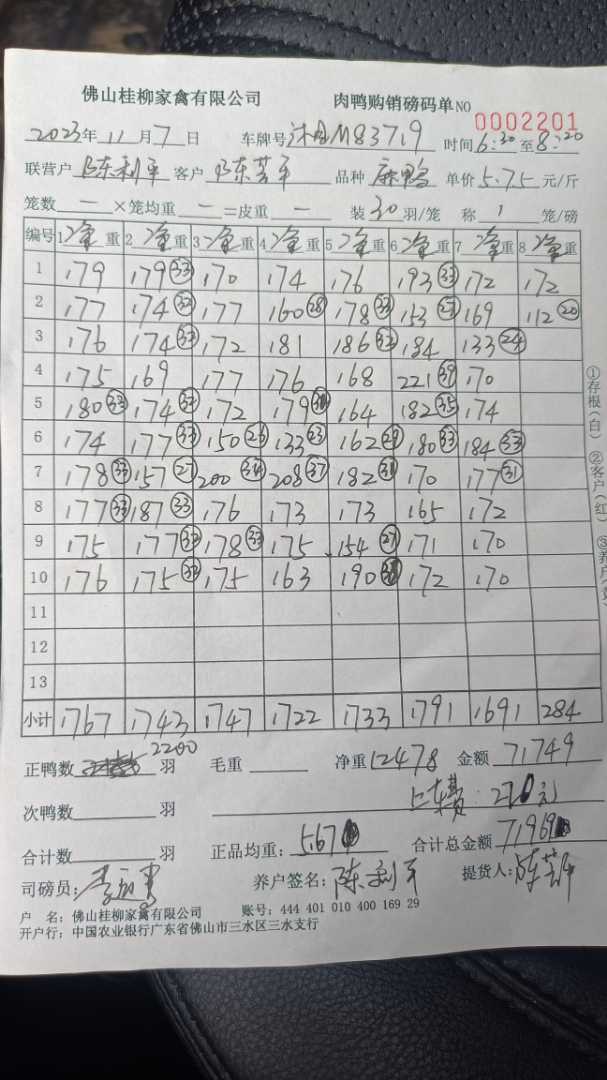 佛山桂柳家禽有限公司 肉鸭购销磅码单NO 0002201
2023年 11月 7日 车牌号 M83719 时间6:30至8:20
联营户 陈利平 客户 陈芸平 品种 麻鸭 单价 5.75 元/斤
笼数 一 ×笼均重 一 =皮重 一 装 30 羽/笼 称 1 笼/磅
编号 1净重 2净重 3净重 4净重 5净重 6净重 7净重 8净重
1 179 179㉝ 170 174 176 193㉝ 172 172
2 177 174㉜ 177 160㉘ 178㉝ 153㉗ 169 112⑳
3 176 174㉝ 172 181 186㉝ 184 133㉔
4 175 169 177 176 168 221㊴ 170
5 180㉝ 174㉜ 172 179 164 182㉟ 174
6 174 177㉝ 150㉖ 133㉓ 162㉙ 180㉝ 184㉝
7 178㉝ 157㉗ 200㉞ 208㊲ 182 170 177㉛
8 177㉝ 187㉝ 176 173 173 165 172
9 175 177㉝ 178㉝ 175 154㉗ 171 170
10 176 175㉝ 175 163 190 172 170
11
12
13
小计 1767 1743 1747 1722 1733 1791 1691 284
正鸭数 2200 羽 毛重 净重 12478 金额 71749
次鸭数 羽 上车费: 220元
合计数 羽 正品均重: 5.67 合计总金额 71969
司磅员: 养户签名: 陈利平 提货人: 陈芸平
户 名: 佛山桂柳家禽有限公司 账号: 444 401 010 400 169 29
开户行: 中国农业银行广东省佛山市三水区三水支行
①存根(白) ②客户(红) ③养户